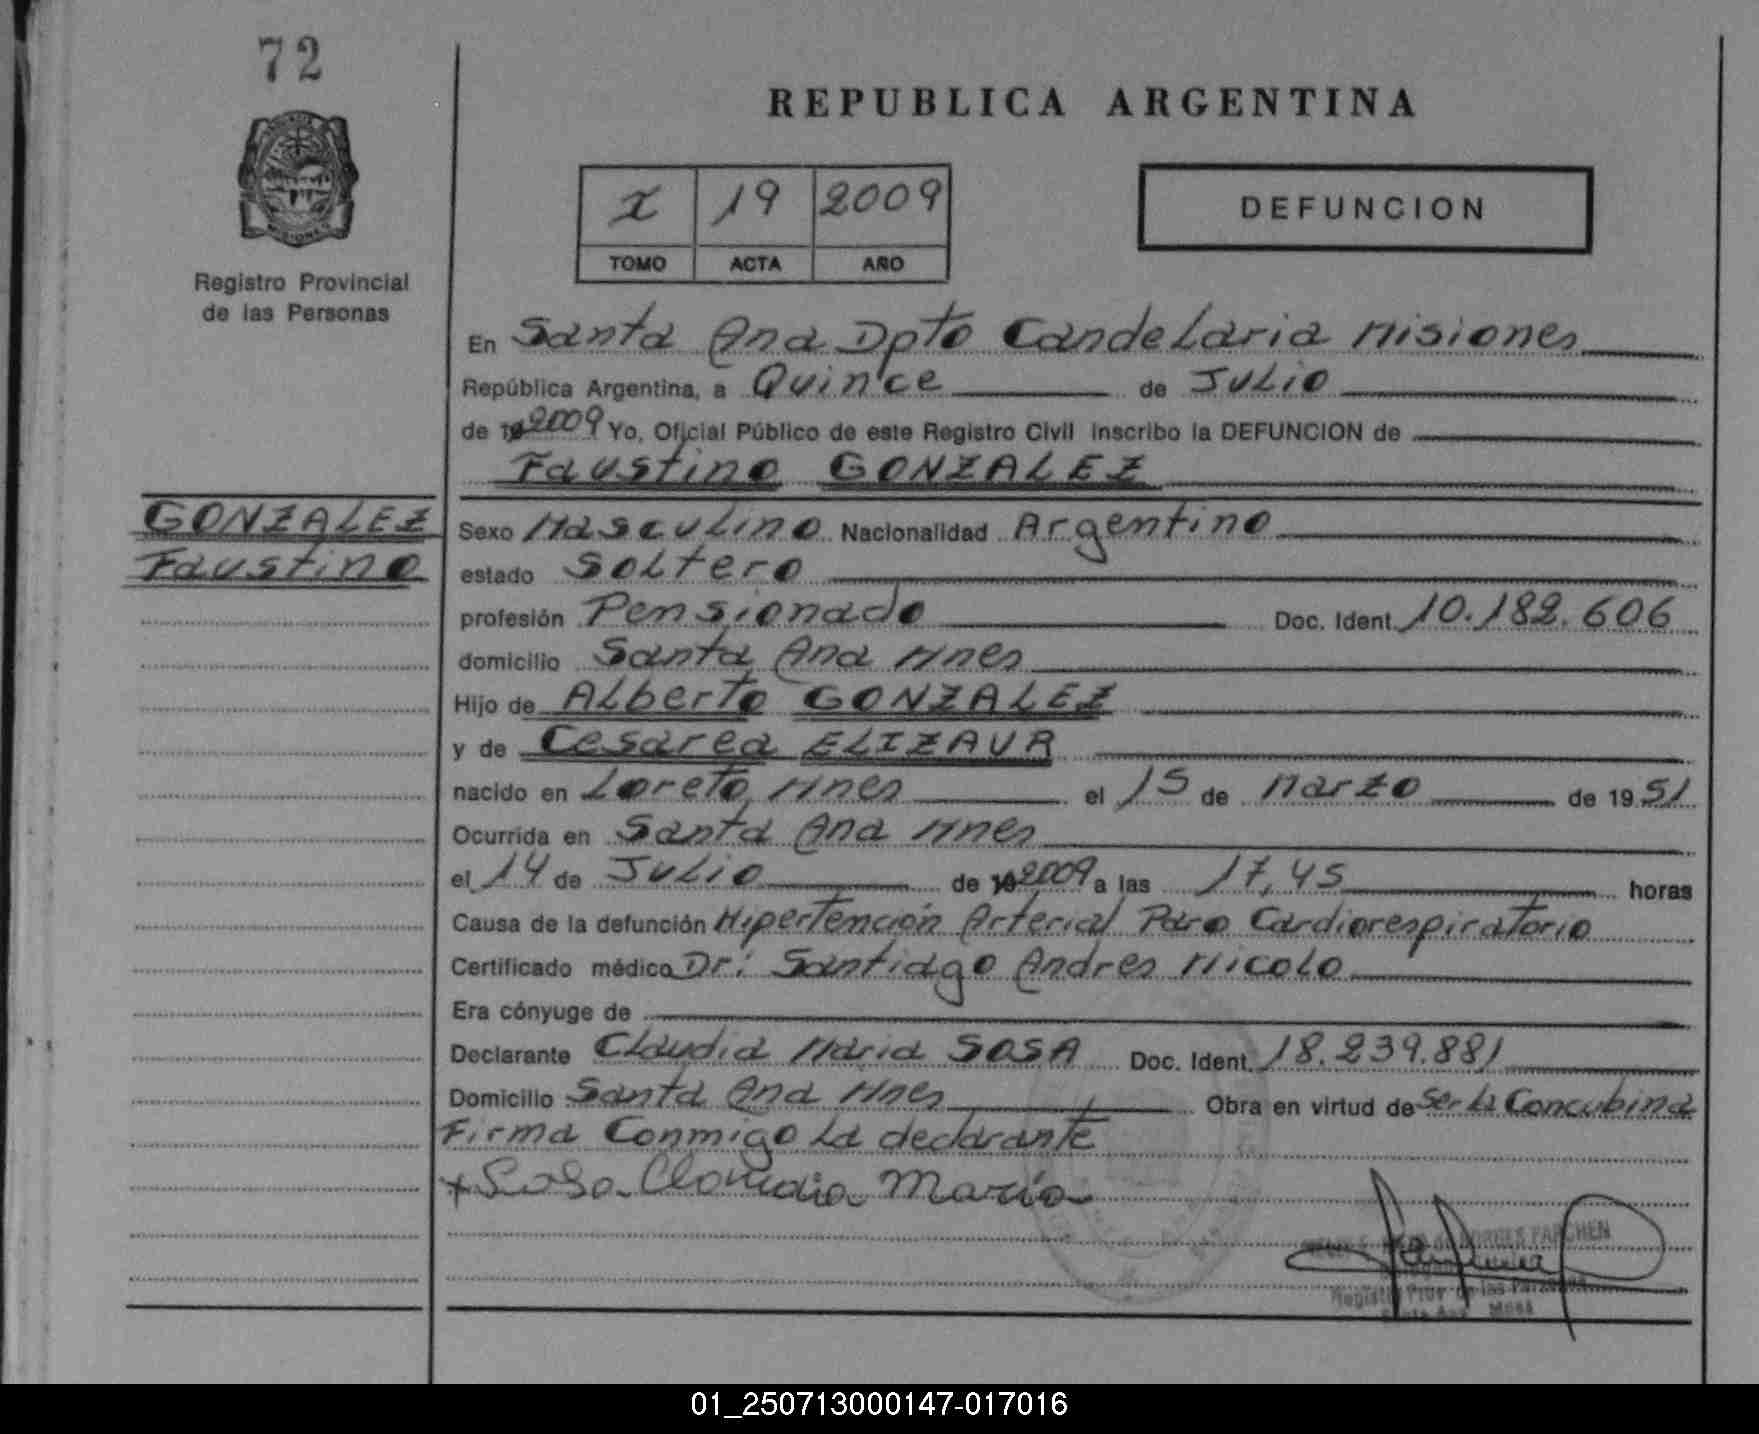 72
REPUBLICA ARGENTINA
I 19 2009
TOMO ACTA AÑO
DEFUNCION
Registro Provincial
de las Personas
En Santa Ana Dpto Candelaria Misiones
República Argentina, a Quince de Julio
de 19 2009 Yo, Oficial Público de este Registro Civil inscribo la DEFUNCION de
Faustino GONZALEZ
GONZALEZ
Faustino
Sexo Masculino Nacionalidad Argentino
estado Soltero
profesión Pensionado Doc. Ident. 10.182.606
domicilio Santa Ana Mnes
Hijo de Alberto GONZALEZ
y de Cesarea ELIZAUR
nacido en Loreto, Mnes el 15 de Marzo de 1951
Ocurrida en Santa Ana Mnes
el 14 de Julio de 19 2009 a las 17,45 horas
Causa de la defunción Hipertención Arterial Paro Cardiorespiratorio
Certificado médico Dr: Santiago Andres Nicolo
Era cónyuge de
Declarante Claudia Maria SOSA Doc. Ident. 18.239.881
Domicilio Santa Ana Mnes Obra en virtud de Ser la Concubina
Firma Conmigo la declarante
+ Sosa Claudia María
Registro Prov. de las Personas
Santa Ana Mnes
01_250713000147-017016